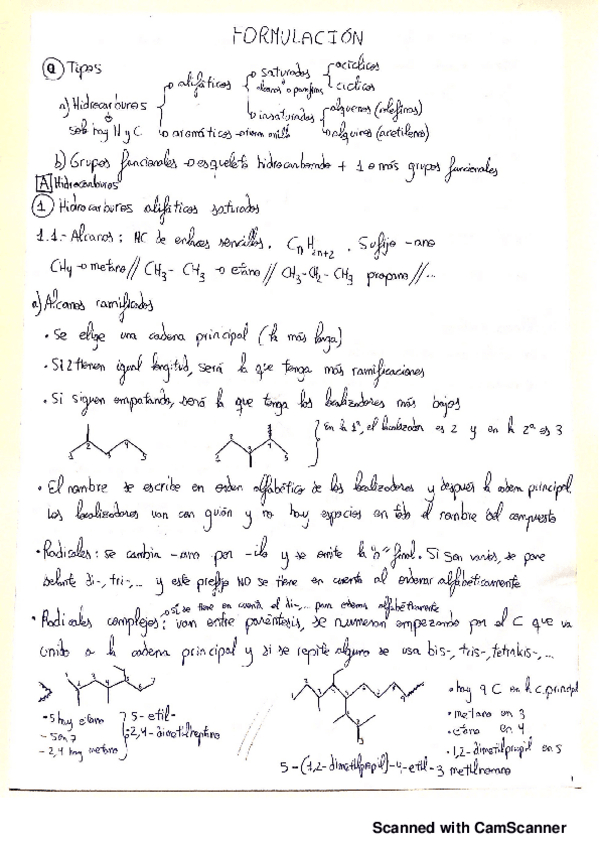 FORMULACIÓN
a Tipos
a) Hidrocarburos
sólo hay H y C
alifáticos
saturados
alcanos o parafinas
acíclicos
cíclicos
insaturados
alquenos (olefinas)
alquinos (acetileno)
aromáticos
b) Grupos funcionales → esqueleto hidrocarbonado + 1 o más grupos funcionales
A Hidrocarburos
1 Hidrocarburos alifáticos saturados
1.1.- Alcanos: HC de enlaces sencillos. CnH2n+2. Sufijo -ano
CH4 → metano // CH3-CH3 → etano // CH3-CH2-CH3 propano // ...
a) Alcanos ramificados
· Se elige una cadena principal (la más larga)
· Si 2 tienen igual longitud, será la que tenga más ramificaciones
· Si siguen empatando, será la que tenga los localizadores más bajos
En la 1ª, el localizador es 2 y en la 2ª es 3
· El nombre se escribe en orden alfabético de los localizadores y después la cadena principal.
Los localizadores van con guión y no hay espacios en todo el nombre del compuesto
· Radicales: se cambia -ano por -ilo y se omite la "o" final. Si son varios, se pone
delante di-, tri-,... y este prefijo NO se tiene en cuenta al ordenar alfabéticamente
sí se tiene en cuenta el di-,... para ordenar alfabéticamente
· Radicales complejos: van entre paréntesis, se numeran empezando por el C que va
unido a la cadena principal y si se repite alguno se usa bis-, tris-, tetrakis-, ...
- 5 hay etano
- 2,4 hay metano
5-etil-
2,4-dimetilheptano
· hay 9 C en la c. principal
· metano en 3
· etano en 4
· 1,2-dimetilpropil en 5
5-(1,2-dimetilpropil)-4-etil-3 metilnonano
1
Scanned with CamScanner